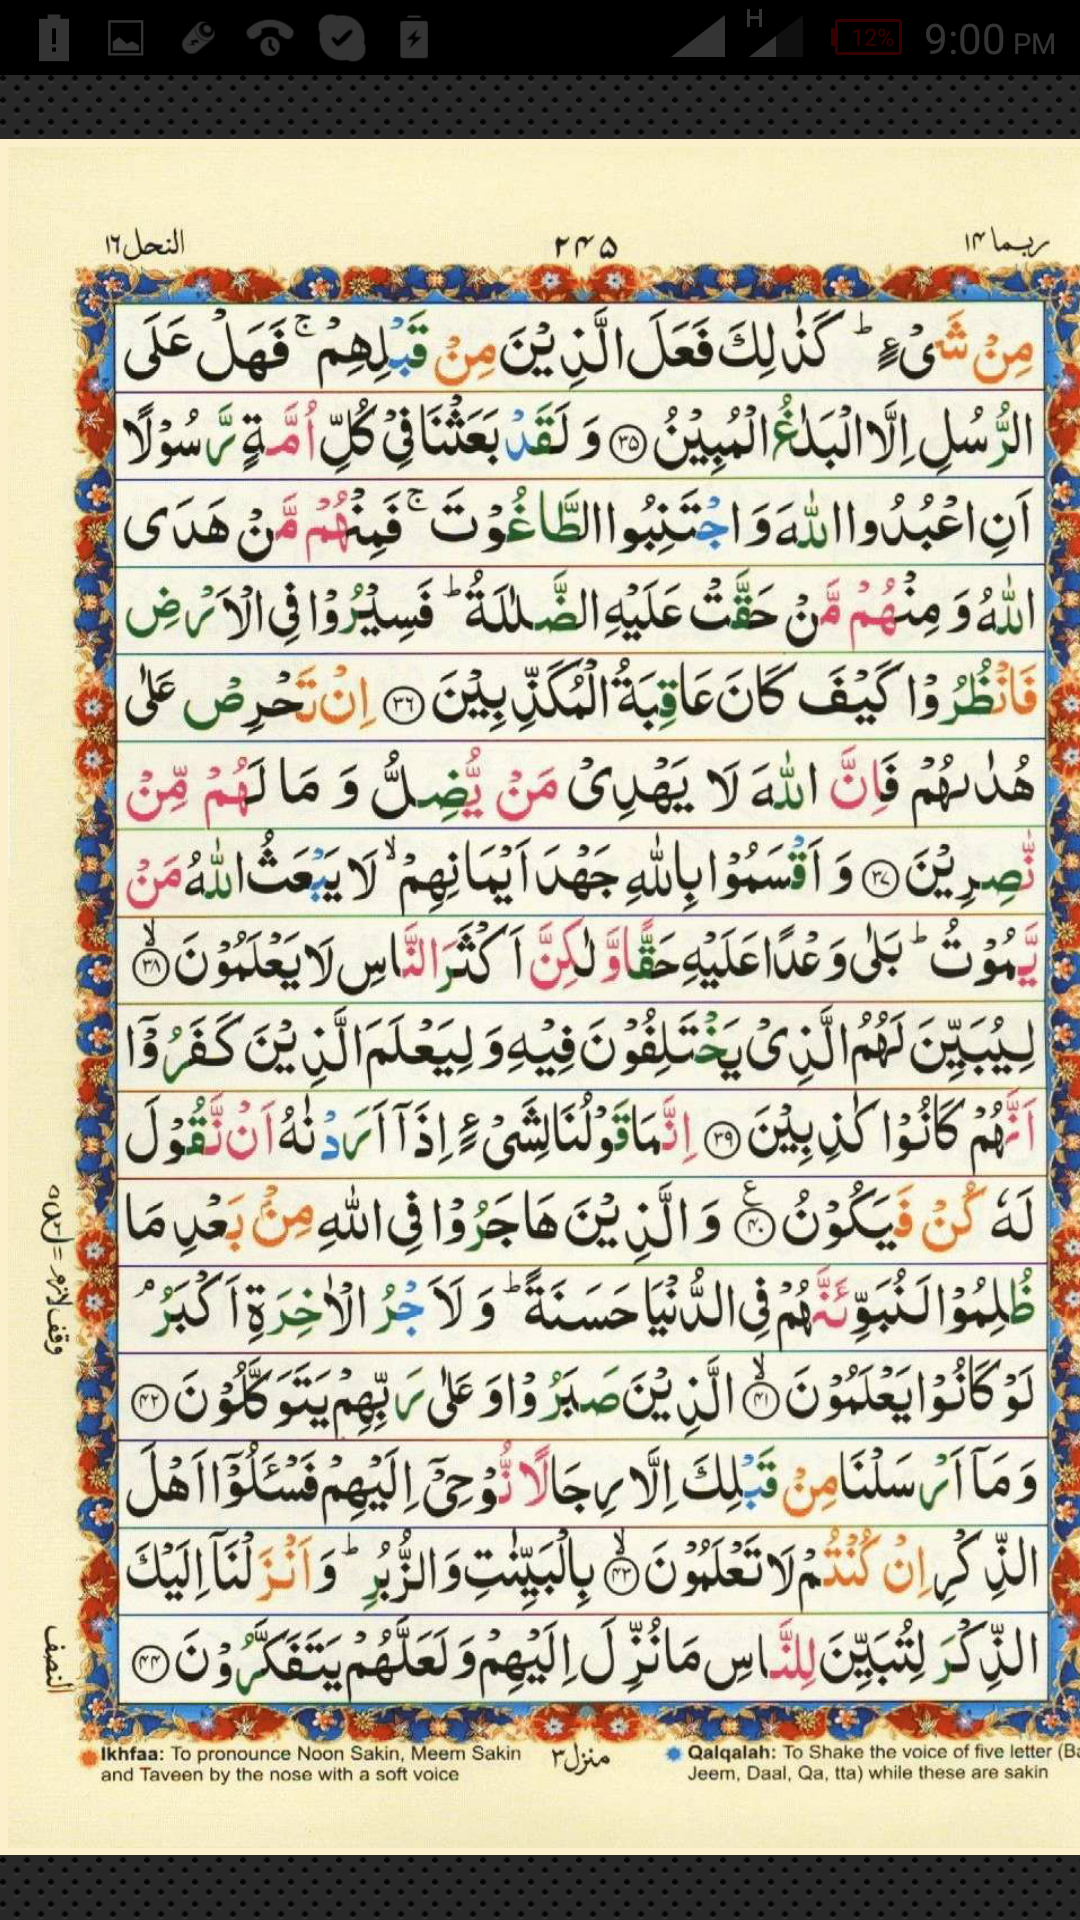 H 12% 9:00 PM
النحل ١٦ ٢٤٥ ربما ١٤
مِنْ شَیْءٍ ؕ كَذٰلِكَ فَعَلَ الَّذِیْنَ مِنْ قَبْلِهِمْ ۚ فَهَلْ عَلَی
الرُّسُلِ اِلَّا الْبَلٰغُ الْمُبِیْنُ ﴿٣٥﴾ وَ لَقَدْ بَعَثْنَا فِیْ كُلِّ اُمَّةٍ رَّسُوْلًا
اَنِ اعْبُدُوا اللّٰهَ وَ اجْتَنِبُوا الطَّاغُوْتَ ۚ فَمِنْهُمْ مَّنْ هَدَی
اللّٰهُ وَ مِنْهُمْ مَّنْ حَقَّتْ عَلَیْهِ الضَّلٰلَةُ ؕ فَسِیْرُوْا فِی الْاَرْضِ
فَانْظُرُوْا كَیْفَ كَانَ عَاقِبَةُ الْمُكَذِّبِیْنَ ﴿٣٦﴾ اِنْ تَحْرِصْ عَلٰی
هُدٰىهُمْ فَاِنَّ اللّٰهَ لَا یَهْدِیْ مَنْ یُّضِلُّ وَ مَا لَهُمْ مِّنْ
نّٰصِرِیْنَ ﴿٣٧﴾ وَ اَقْسَمُوْا بِاللّٰهِ جَهْدَ اَیْمَانِهِمْ ۙ لَا یَبْعَثُ اللّٰهُ مَنْ
یَّمُوْتُ ؕ بَلٰی وَعْدًا عَلَیْهِ حَقًّا وَّ لٰكِنَّ اَكْثَرَ النَّاسِ لَا یَعْلَمُوْنَ ﴿٣٨﴾ۙ
لِیُبَیِّنَ لَهُمُ الَّذِیْ یَخْتَلِفُوْنَ فِیْهِ وَ لِیَعْلَمَ الَّذِیْنَ كَفَرُوْۤا
اَنَّهُمْ كَانُوْا كٰذِبِیْنَ ﴿٣٩﴾ اِنَّمَا قَوْلُنَا لِشَیْءٍ اِذَاۤ اَرَدْنٰهُ اَنْ نَّقُوْلَ
لَهٗ كُنْ فَیَكُوْنُ ﴿٤٠﴾ ع وَ الَّذِیْنَ هَاجَرُوْا فِی اللّٰهِ مِنْۢ بَعْدِ مَا
ظُلِمُوْا لَنُبَوِّئَنَّهُمْ فِی الدُّنْیَا حَسَنَةً ؕ وَ لَاَجْرُ الْاٰخِرَةِ اَكْبَرُ ۘ
لَوْ كَانُوْا یَعْلَمُوْنَ ﴿٤١﴾ۙ الَّذِیْنَ صَبَرُوْا وَ عَلٰی رَبِّهِمْ یَتَوَكَّلُوْنَ ﴿٤٢﴾
وَ مَاۤ اَرْسَلْنَا مِنْ قَبْلِكَ اِلَّا رِجَالًا نُّوْحِیْۤ اِلَیْهِمْ فَسْـَٔلُوْۤا اَهْلَ
الذِّكْرِ اِنْ كُنْتُمْ لَا تَعْلَمُوْنَ ﴿٤٣﴾ۙ بِالْبَیِّنٰتِ وَ الزُّبُرِ ؕ وَ اَنْزَلْنَاۤ اِلَیْكَ
الذِّكْرَ لِتُبَیِّنَ لِلنَّاسِ مَا نُزِّلَ اِلَیْهِمْ وَ لَعَلَّهُمْ یَتَفَكَّرُوْنَ ﴿٤٤﴾
وقف لازم
النصف
Ikhfaa: To pronounce Noon Sakin, Meem Sakin
and Taveen by the nose with a soft voice
منزل ٣
Qalqalah: To Shake the voice of five letter (Ba
Jeem, Daal, Qa, tta) while these are sakin